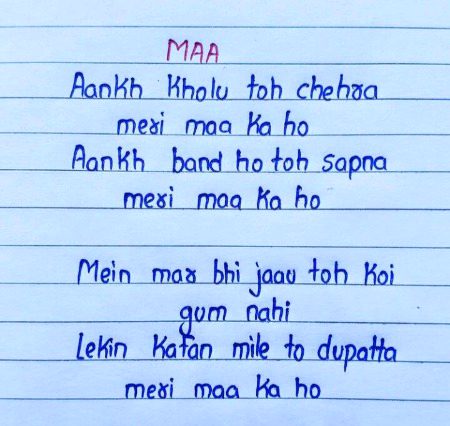 MAA
Aankh Kholu toh chehra
meri maa Ka ho
Aankh band ho toh sapna
meri maa Ka ho
Mein mar bhi jaau toh Koi
gum nahi
Lekin Kafan mile to dupatta
meri maa Ka ho